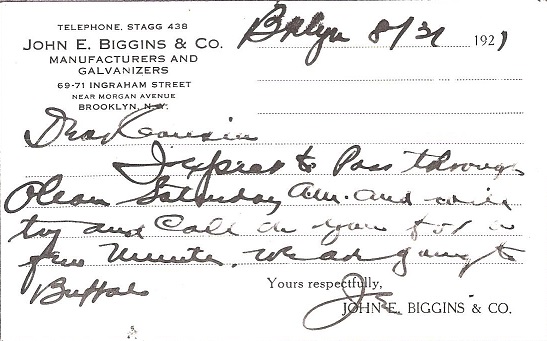 TELEPHONE, STAGG 438
JOHN E. BIGGINS & CO.
MANUFACTURERS AND
GALVANIZERS
69-71 INGRAHAM STREET
NEAR MORGAN AVENUE
BROOKLYN, N.Y.
Bklyn 8/31 1921
Dear Cousin
I expect to Pass through
Olean Saturday Am. and will
try and Call on you for a
few Minutes. We are going to
Buffalo
Yours respectfully,
JOHN E. BIGGINS & CO.